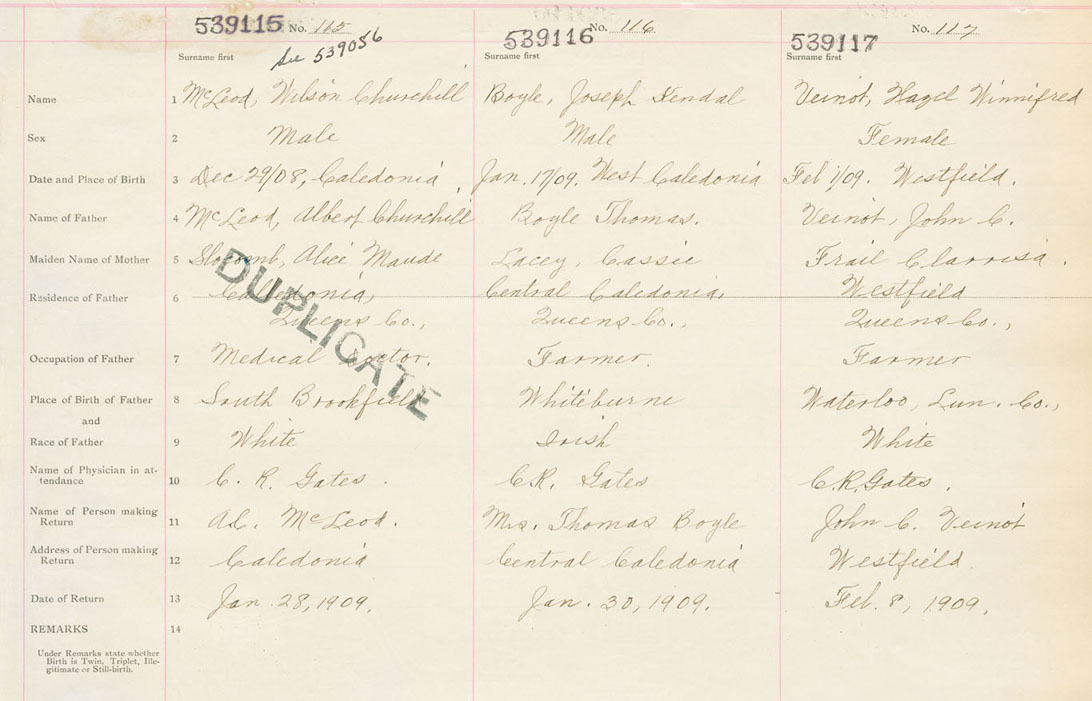 539115 No. 115 539116 No. 116 539117 No. 117
See 539056
Surname first Surname first Surname first
Name 1 McLeod, Wilson Churchill Boyle, Joseph Kendal Veinot, Hazel Winnifred
Sex 2 Male Male Female
Date and Place of Birth 3 Dec 29/08, Caledonia, Jan. 17/09. West Caledonia Feb 1/09. Westfield.
Name of Father 4 McLeod, Albert Churchill Boyle Thomas. Veinot, John C.
Maiden Name of Mother 5 Slocomb, Alice Maude Lacey, Cassie Frail Clarrisa.
Residence of Father 6 Caledonia, Central Caledonia, Westfield
Queens Co., Queens Co., Queens Co.,
DUPLICATE
Occupation of Father 7 Medical Doctor. Farmer. Farmer
Place of Birth of Father 8 South Brookfield Whiteburne Waterloo, Lun. Co.,
and
Race of Father 9 White Irish White
Name of Physician in at-
tendance 10 C. R. Gates. C.R. Gates C.R. Gates.
Name of Person making
Return 11 A.C. McLeod. Mrs. Thomas Boyle John C. Veinot
Address of Person making
Return 12 Caledonia Central Caledonia Westfield.
Date of Return 13 Jan. 28, 1909. Jan. 30, 1909. Feb. 8, 1909.
REMARKS 14
Under Remarks state whether
Birth is Twin, Triplet, Ille-
gitimate or Still-birth.